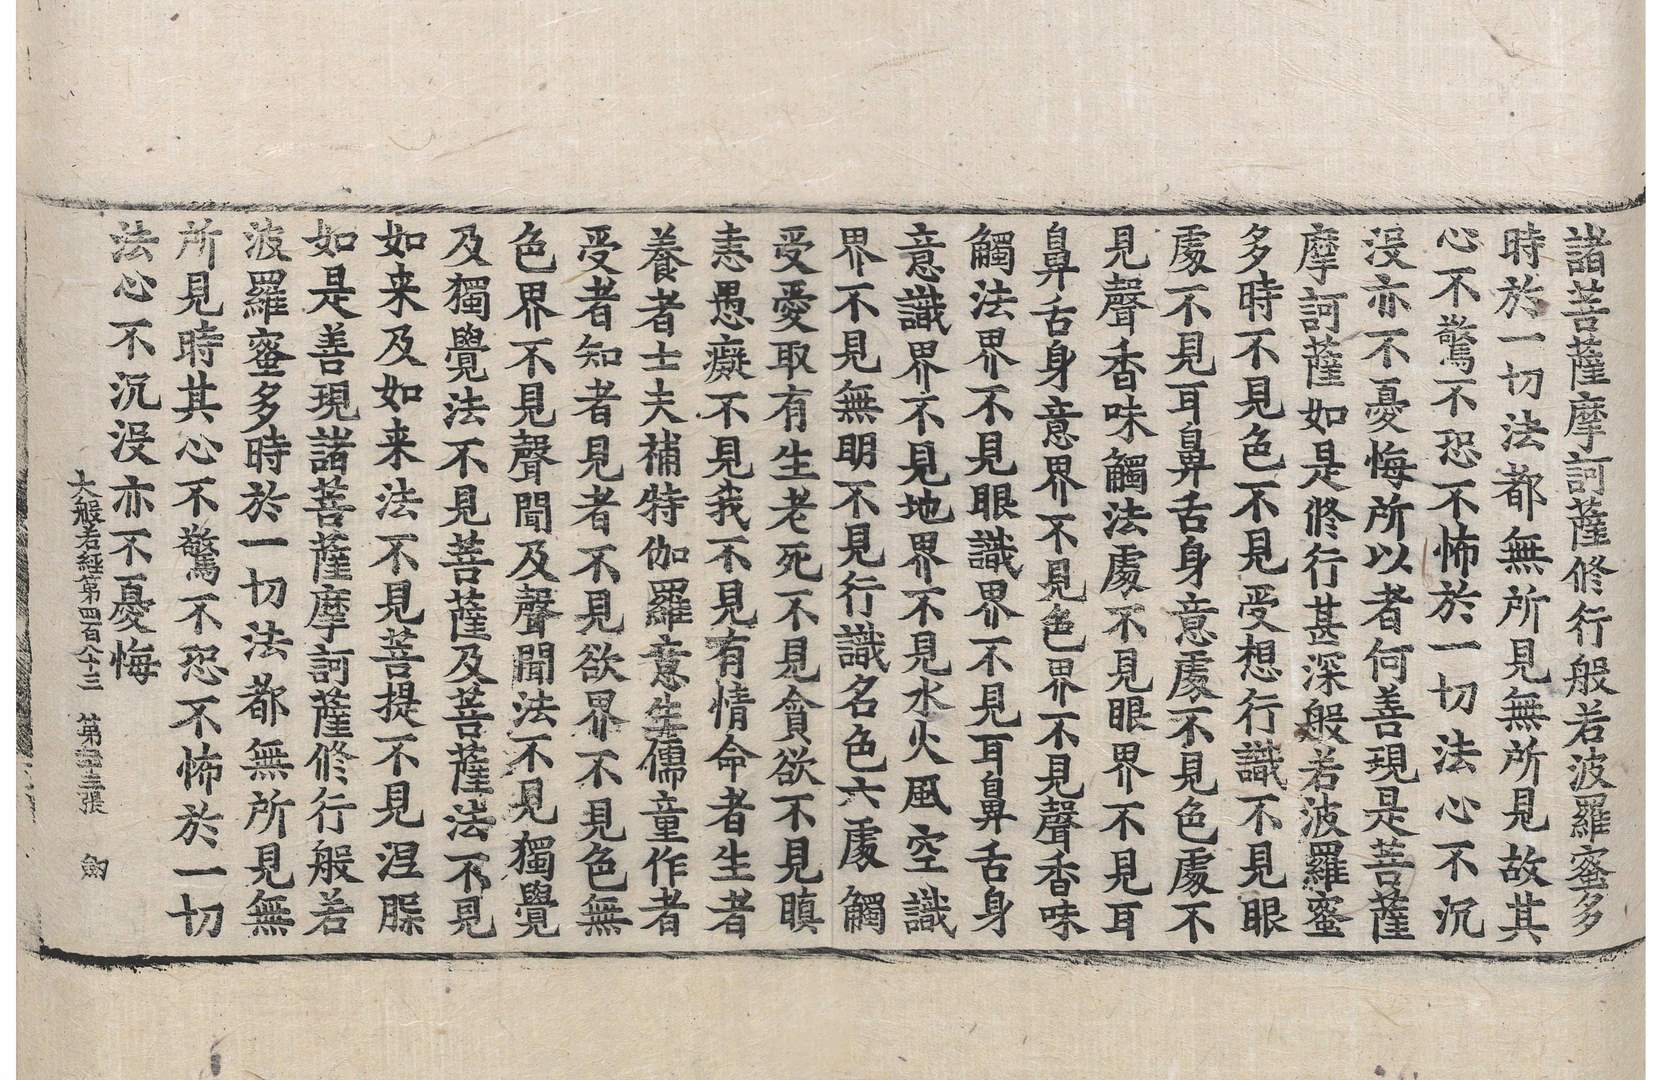 諸菩薩摩訶薩修行般若波羅蜜多
時於一切法都無所見無所見故其
心不驚不恐不怖於一切法心不沉
沒亦不憂悔所以者何善現是菩薩
摩訶薩如是修行甚深般若波羅蜜
多時不見色不見受想行識不見眼
處不見耳鼻舌身意處不見色處不
見聲香味觸法處不見眼界不見耳
鼻舌身意界不見色界不見聲香味
觸法界不見眼識界不見耳鼻舌身
意識界不見地界不見水火風空識
界不見無明不見行識名色六處觸
受愛取有生老死不見貪欲不見瞋
恚愚癡不見我不見有情命者生者
養者士夫補特伽羅意生儒童作者
受者知者見者不見欲界不見色無
色界不見聲聞及聲聞法不見獨覺
及獨覺法不見菩薩及菩薩法不見
如来及如来法不見菩提不見涅槃
如是善現諸菩薩摩訶薩修行般若
波羅蜜多時於一切法都無所見無
所見時其心不驚不恐不怖於一切
法心不沉沒亦不憂悔
大般若經第四百八十三 第張 劒